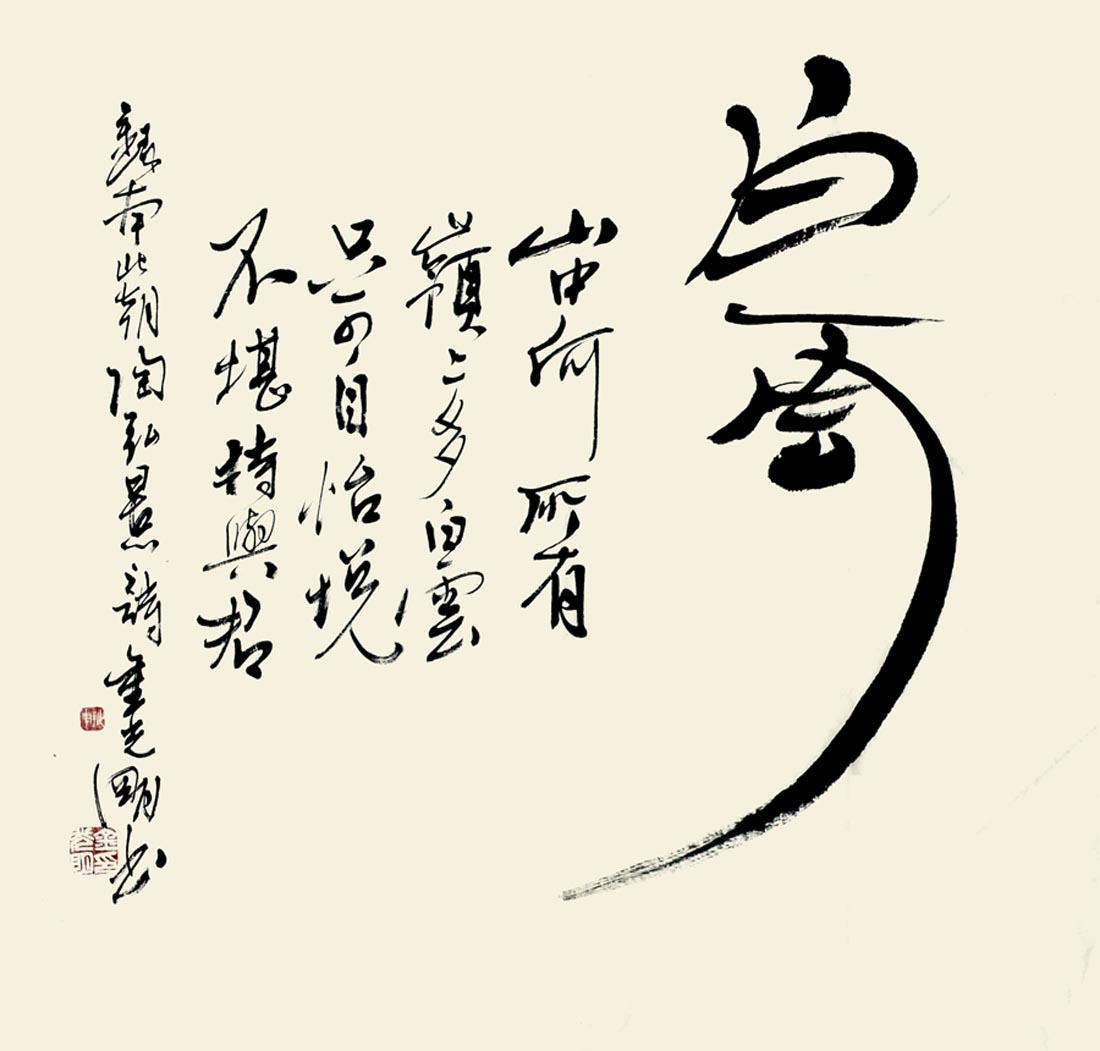 白雲
山中何所有
嶺上多白雲
只可自怡悅
不堪持與君
錄南北朝陶弘景詩 書